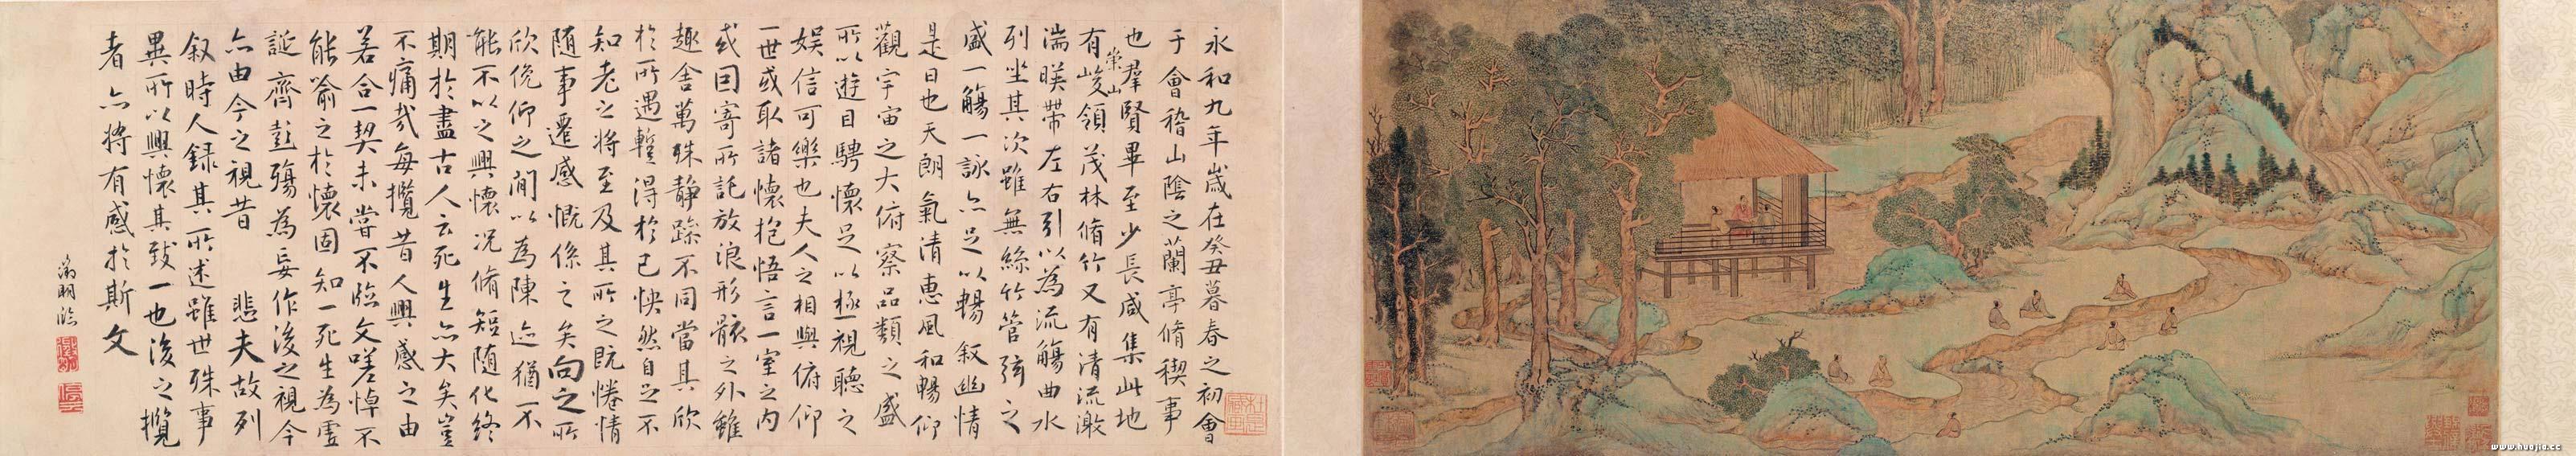 永和九年歲在癸丑暮春之初會
于會稽山陰之蘭亭脩稧事
也羣賢畢至少長咸集此地
有崇山峻領茂林脩竹又有清流激
湍暎帶左右引以為流觴曲水
列坐其次雖無絲竹管弦之
盛一觴一詠亦足以暢叙幽情
是日也天朗氣清惠風和暢仰
觀宇宙之大俯察品類之盛
所以遊目騁懷足以極視聽之
娛信可樂也夫人之相與俯仰
一世或取諸懷抱悟言一室之內
或因寄所託放浪形骸之外雖
趣舍萬殊靜躁不同當其欣
於所遇蹔得於己怏然自足不
知老之將至及其所之既惓情
隨事遷感慨係之矣向之所
欣俛仰之閒以為陳迹猶不
能不以之興懷況脩短隨化終
期於盡古人云死生亦大矣豈
不痛哉每攬昔人興感之由
若合一契未嘗不臨文嗟悼不
能喻之於懷固知一死生為虛
誕齊彭殤為妄作後之視今
亦由今之視昔 悲夫故列
叙時人錄其所述雖世殊事
異所以興懷其致一也後之攬
者亦將有感於斯文
徵明臨
www.huajia.cc